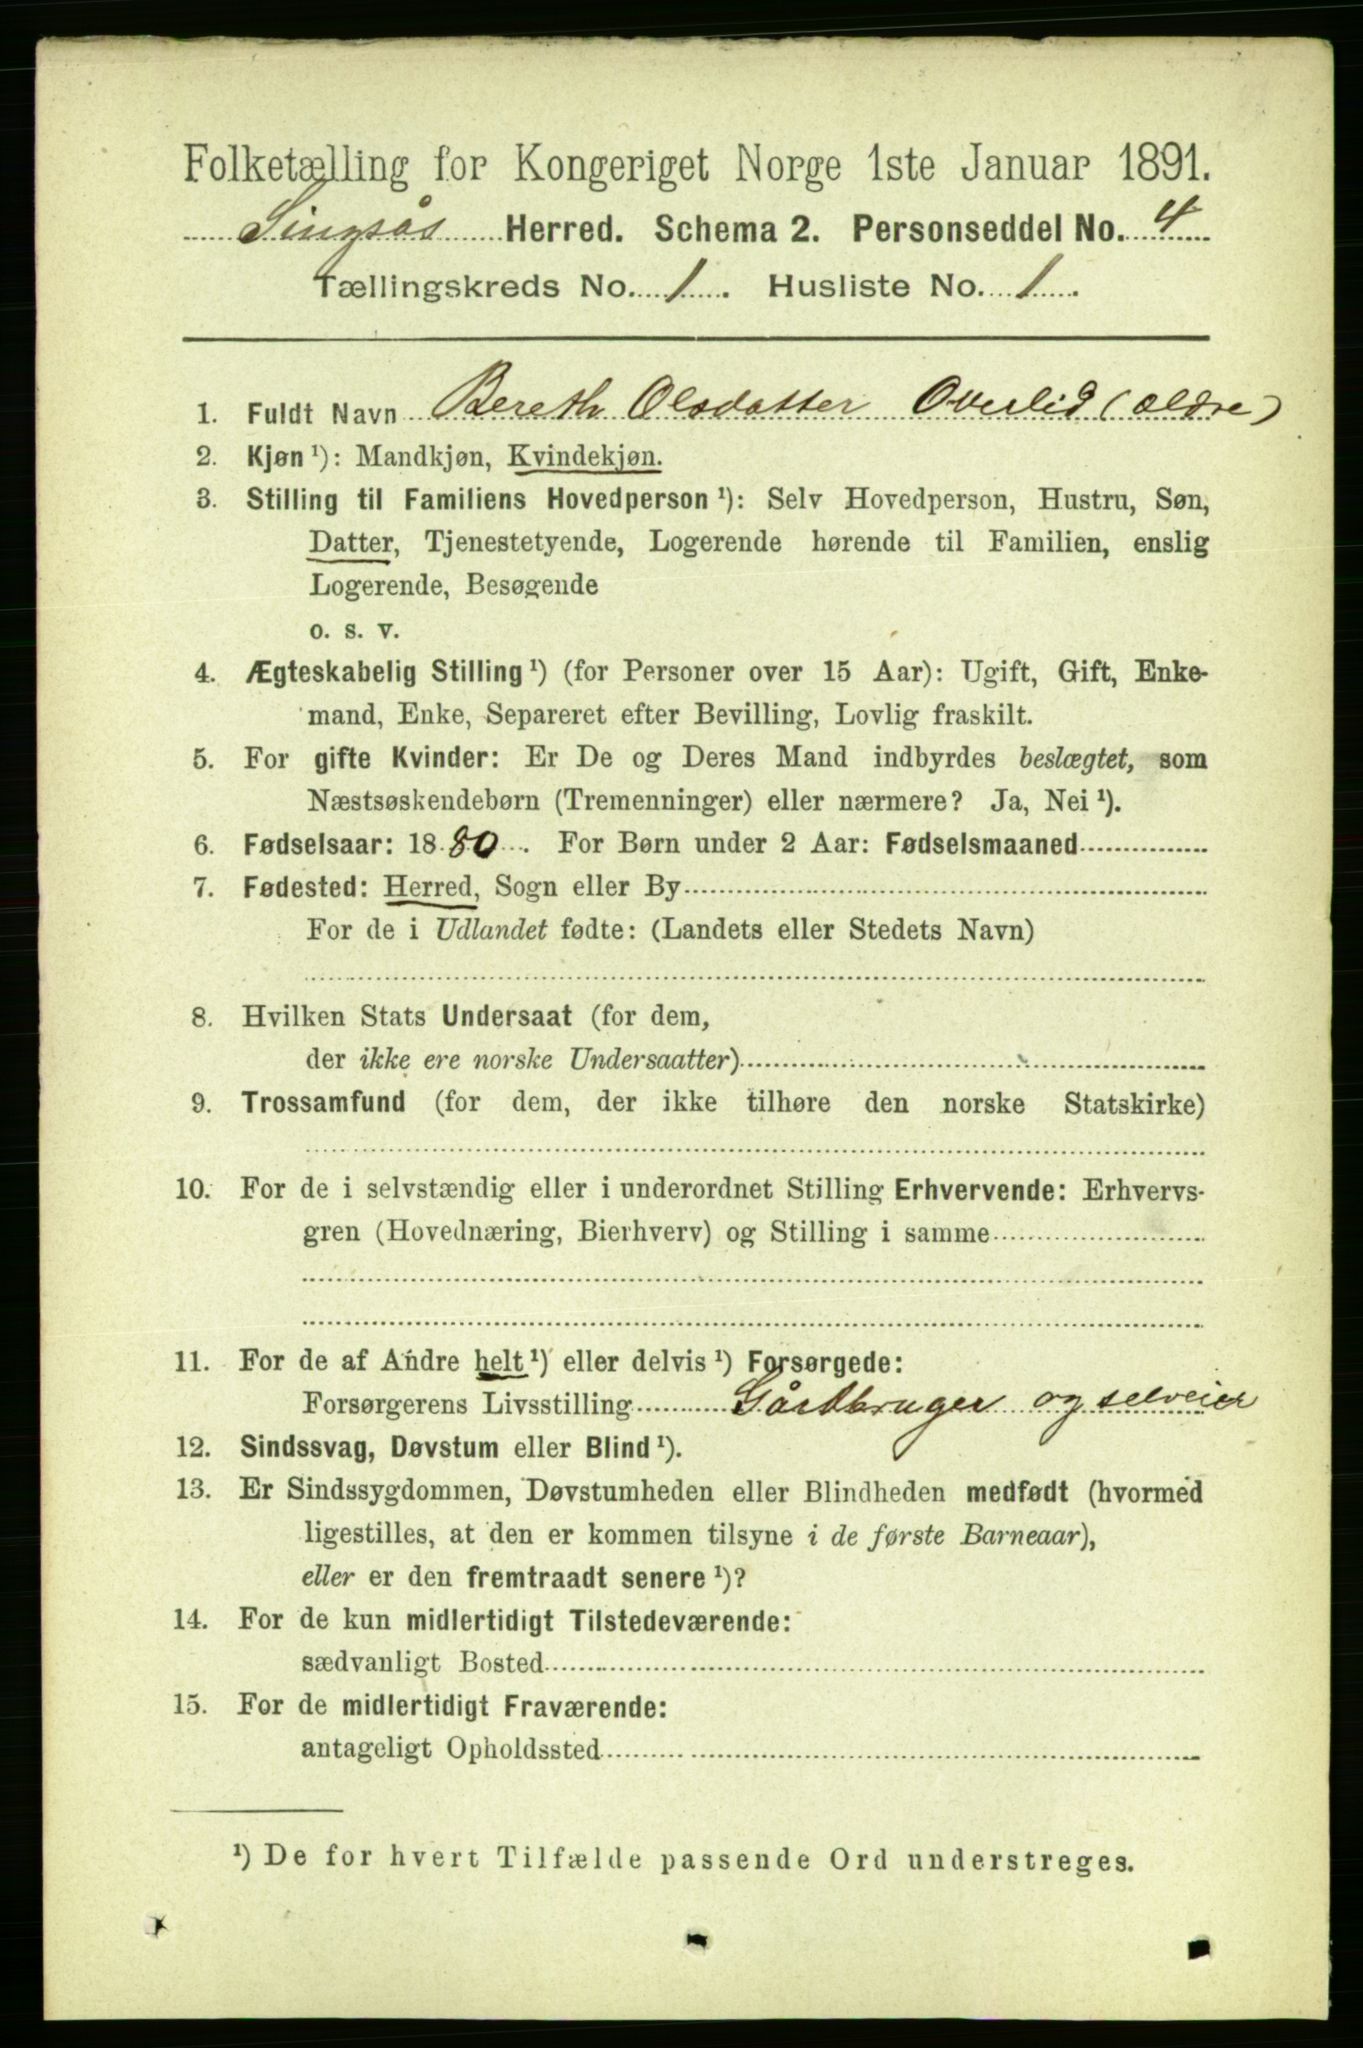 Folketælling for Kongeriget Norge 1ste Januar 1891.
Singsås Herred. Schema 2. Personseddel No. 4
Tællingskreds No. 1. Husliste No. 1.
1. Fuldt Navn Bereth Olsdatter Overlid (ældre)
2. Kjøn ¹): Mandkjøn, Kvindekjøn.
3. Stilling til Familiens Hovedperson ¹): Selv Hovedperson, Hustru, Søn,
Datter, Tjenestetyende, Logerende hørende til Familien, enslig
Logerende, Besøgende
o. s. v.
4. Ægteskabelig Stilling ¹) (for Personer over 15 Aar): Ugift, Gift, Enke-
mand, Enke, Separeret efter Bevilling, Lovlig fraskilt.
5. For gifte Kvinder: Er De og Deres Mand indbyrdes beslægtet, som
Næstsøskendebørn (Tremenninger) eller nærmere? Ja, Nei ¹).
6. Fødselsaar: 1880. For Børn under 2 Aar: Fødselsmaaned
7. Fødested: Herred, Sogn eller By
For de i Udlandet fødte: (Landets eller Stedets Navn)
8. Hvilken Stats Undersaat (for dem,
der ikke ere norske Undersaatter)
9. Trossamfund (for dem, der ikke tilhøre den norske Statskirke)
10. For de i selvstændig eller i underordnet Stilling Erhvervende: Erhvervs-
gren (Hovednæring, Bierhverv) og Stilling i samme
11. For de af Andre helt ¹) eller delvis ¹) Forsørgede:
Forsørgerens Livsstilling Gårdbruger og selveier
12. Sindssvag, Døvstum eller Blind ¹).
13. Er Sindssygdommen, Døvstumheden eller Blindheden medfødt (hvormed
ligestilles, at den er kommen tilsyne i de første Barneaar),
eller er den fremtraadt senere ¹)?
14. For de kun midlertidigt Tilstedeværende:
sædvanligt Bosted
15. For de midlertidigt Fraværende:
antageligt Opholdssted
¹) De for hvert Tilfælde passende Ord understreges.